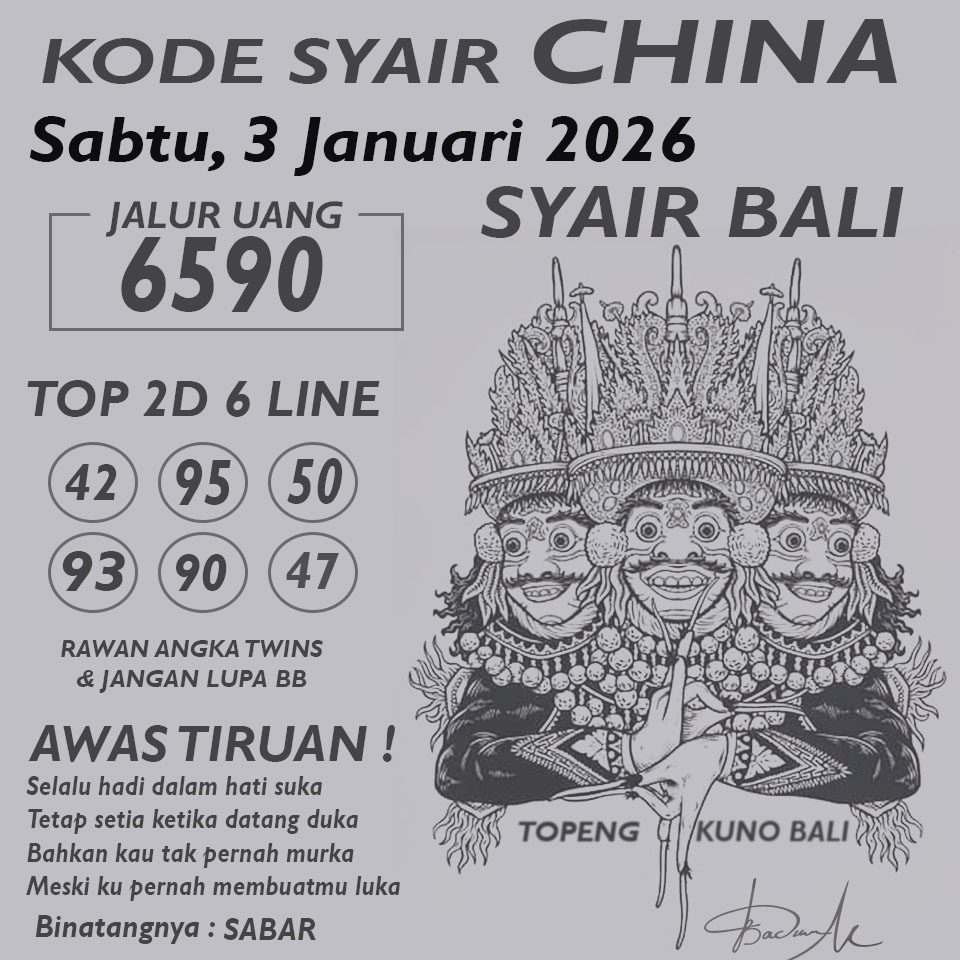 KODE SYAIR CHINA
Sabtu, 3 Januari 2026
SYAIR BALI
JALUR UANG
6590
TOP 2D 6 LINE
42 95 50
93 90 47
RAWAN ANGKA TWINS
& JANGAN LUPA BB
AWAS TIRUAN !
Selalu hadi dalam hati suka
Tetap setia ketika datang duka
Bahkan kau tak pernah murka
Meski ku pernah membuatmu luka
Binatangnya : SABAR
TOPENG KUNO BALI